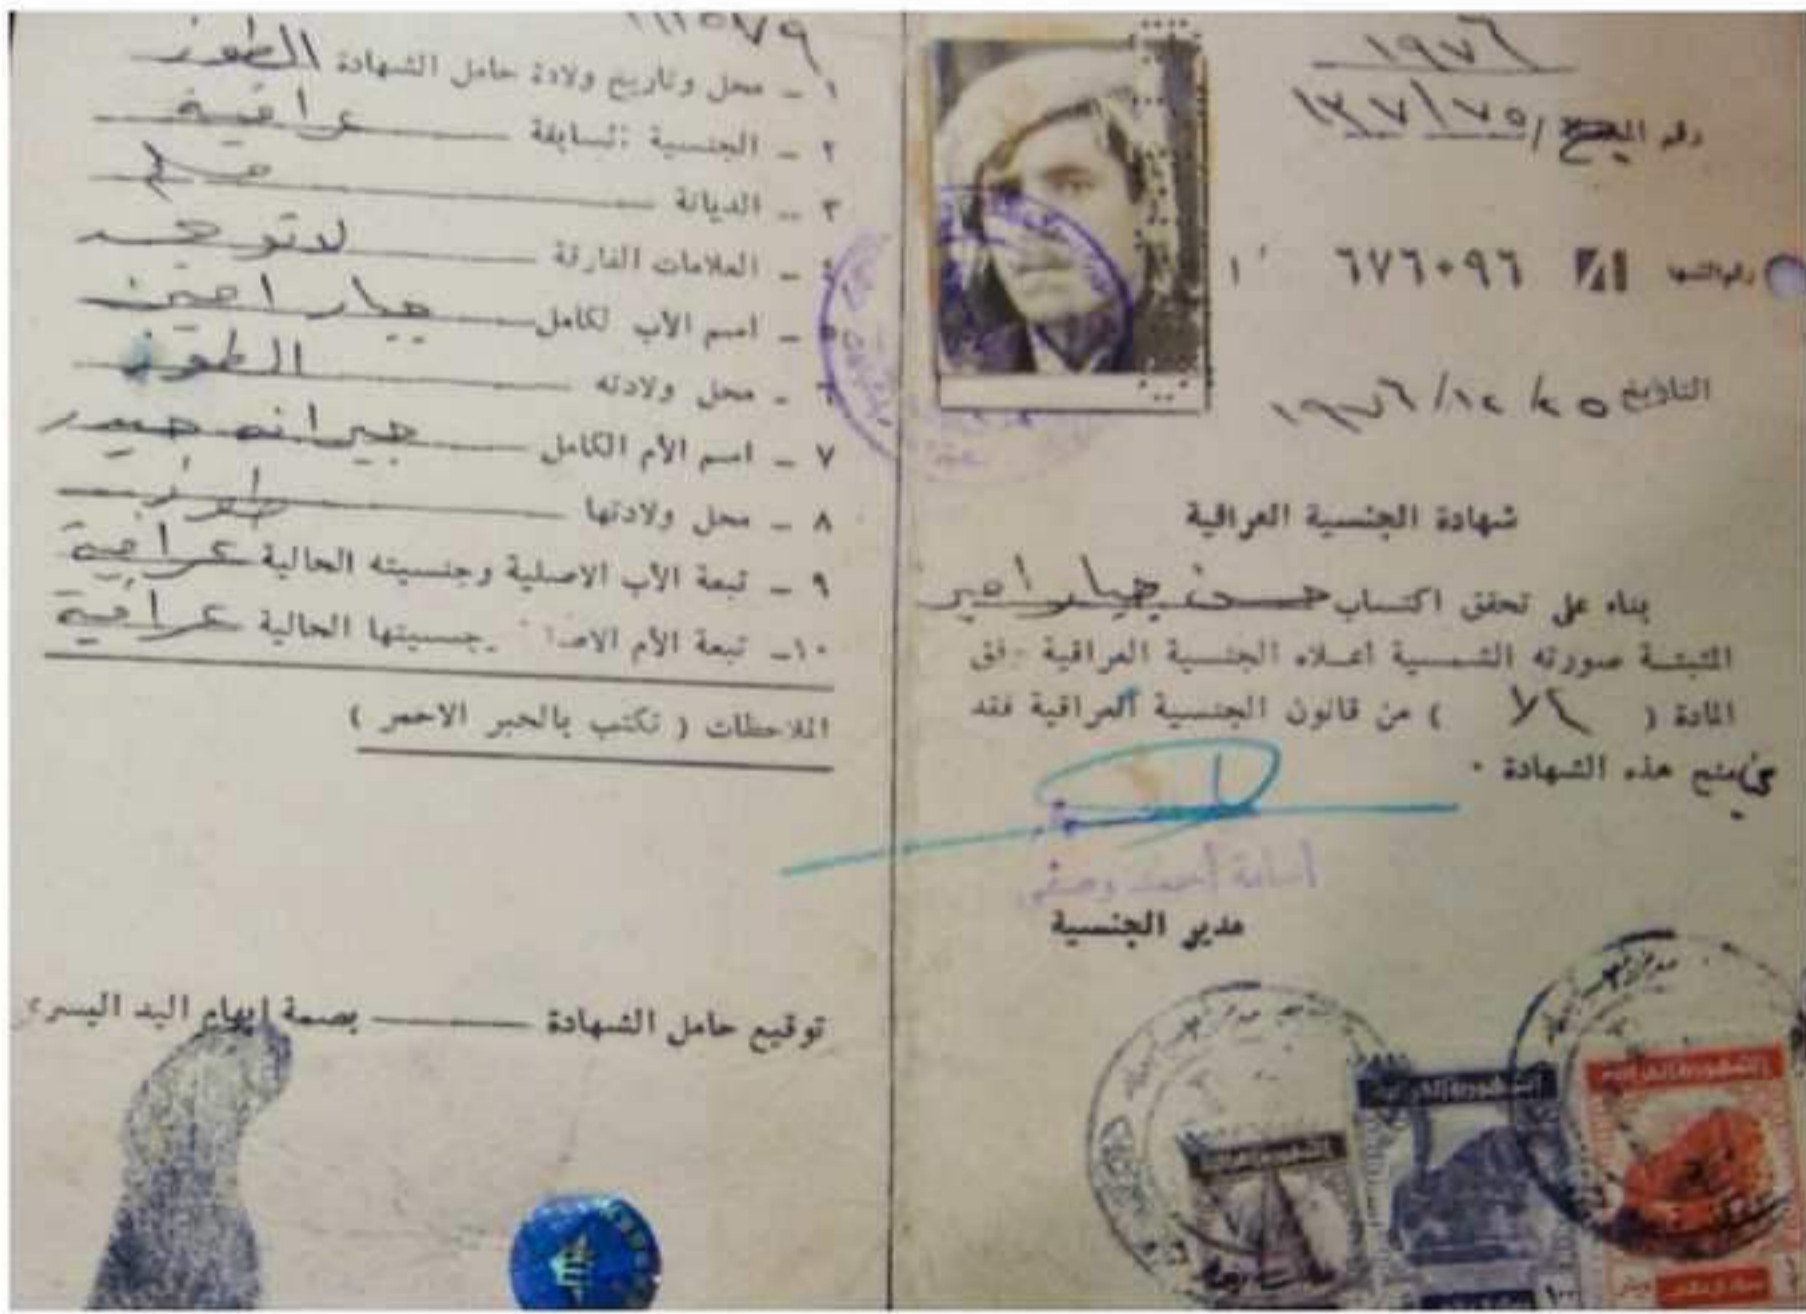 ١٩٧٦
رقم
رقم الشهادة ٦٧٦٠٩٦ ا
التاريخ ٢٥ / ١٢ / ١٩٧٦
شهادة الجنسية العراقية
بناء على تحقق اكتساب حسن جبار امير
المثبتة صورته الشمسية أعلاه الجنسية العراقية وفق
المادة ( ) من قانون الجنسية العراقية فقد
منح هذه الشهادة ٠
أسامة أحمد وصفي
مدير الجنسية
الجمهورية العراقية
الجمهورية العراقية
الجمهورية العراقية
١٠٠
١ - محل وتاريخ ولادة حامل الشهادة الطوز
٢ - الجنسية السابقة عراقية
٣ - الديانة مسلم
٤ - العلامات الفارقة لا توجد
٥ - اسم الأب الكامل جبار امين
٦ - محل ولادته الطوز
٧ - اسم الأم الكامل جيران حيدر
٨ - محل ولادتها طوز
٩ - تبعة الأب الاصلية وجنسيته الحالية عراقية
١٠ - تبعة الأم الاصلية وجنسيتها الحالية عراقية
الملاحظات ( تكتب بالحبر الاحمر )
توقيع حامل الشهادة بصمة إبهام اليد اليسرى